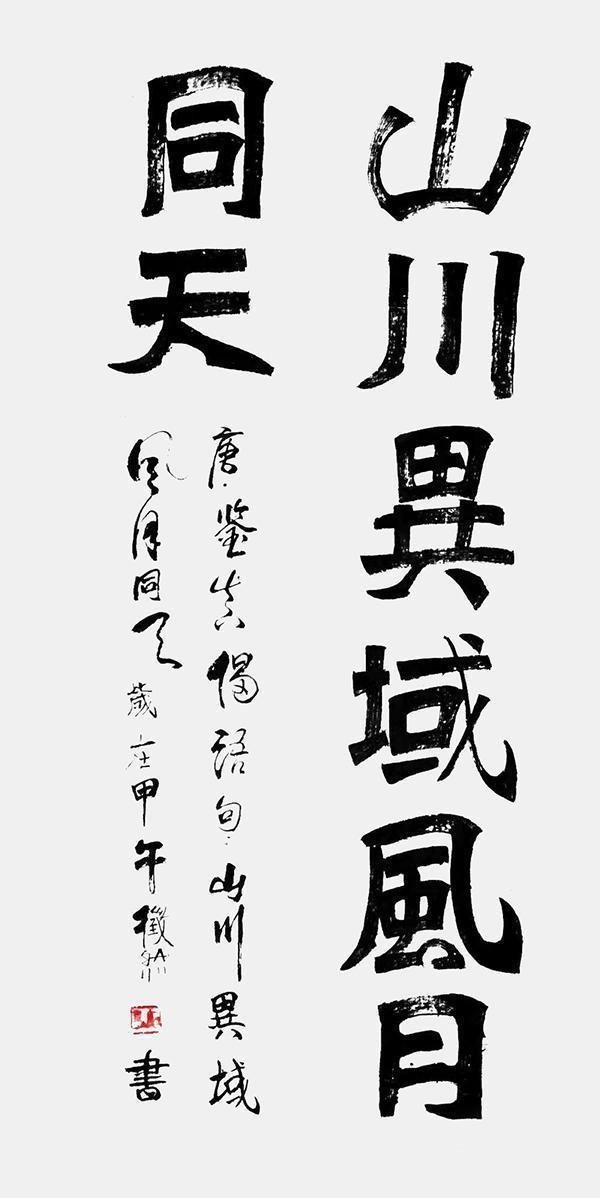 山川異域風月
同天
唐鉴真偈語句山川異域
风月同天歲在甲午書